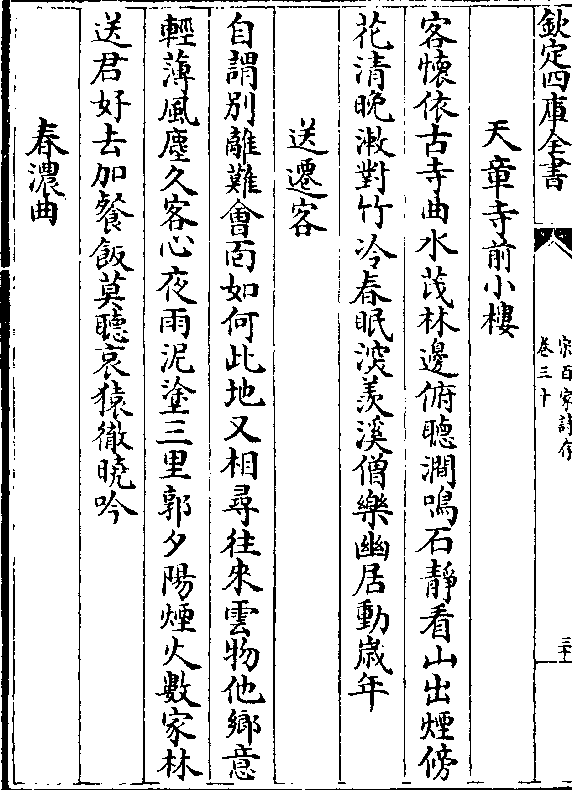 欽定四庫全書
宋百家詩存
卷三十
天章寺前小樓
客懷依古寺曲水茂林邊俯聽澗鳴石靜看山出煙傍
花清晚漱對竹冷春眠深羨溪僧樂幽居動歳年
送遷客
自謂別離難會面如何此地又相尋往來雲物他鄉意
輕薄風塵久客心夜雨泥塗三里郭夕陽煙火數家林
送君好去加餐飯莫聽哀猿徹曉吟
春濃曲